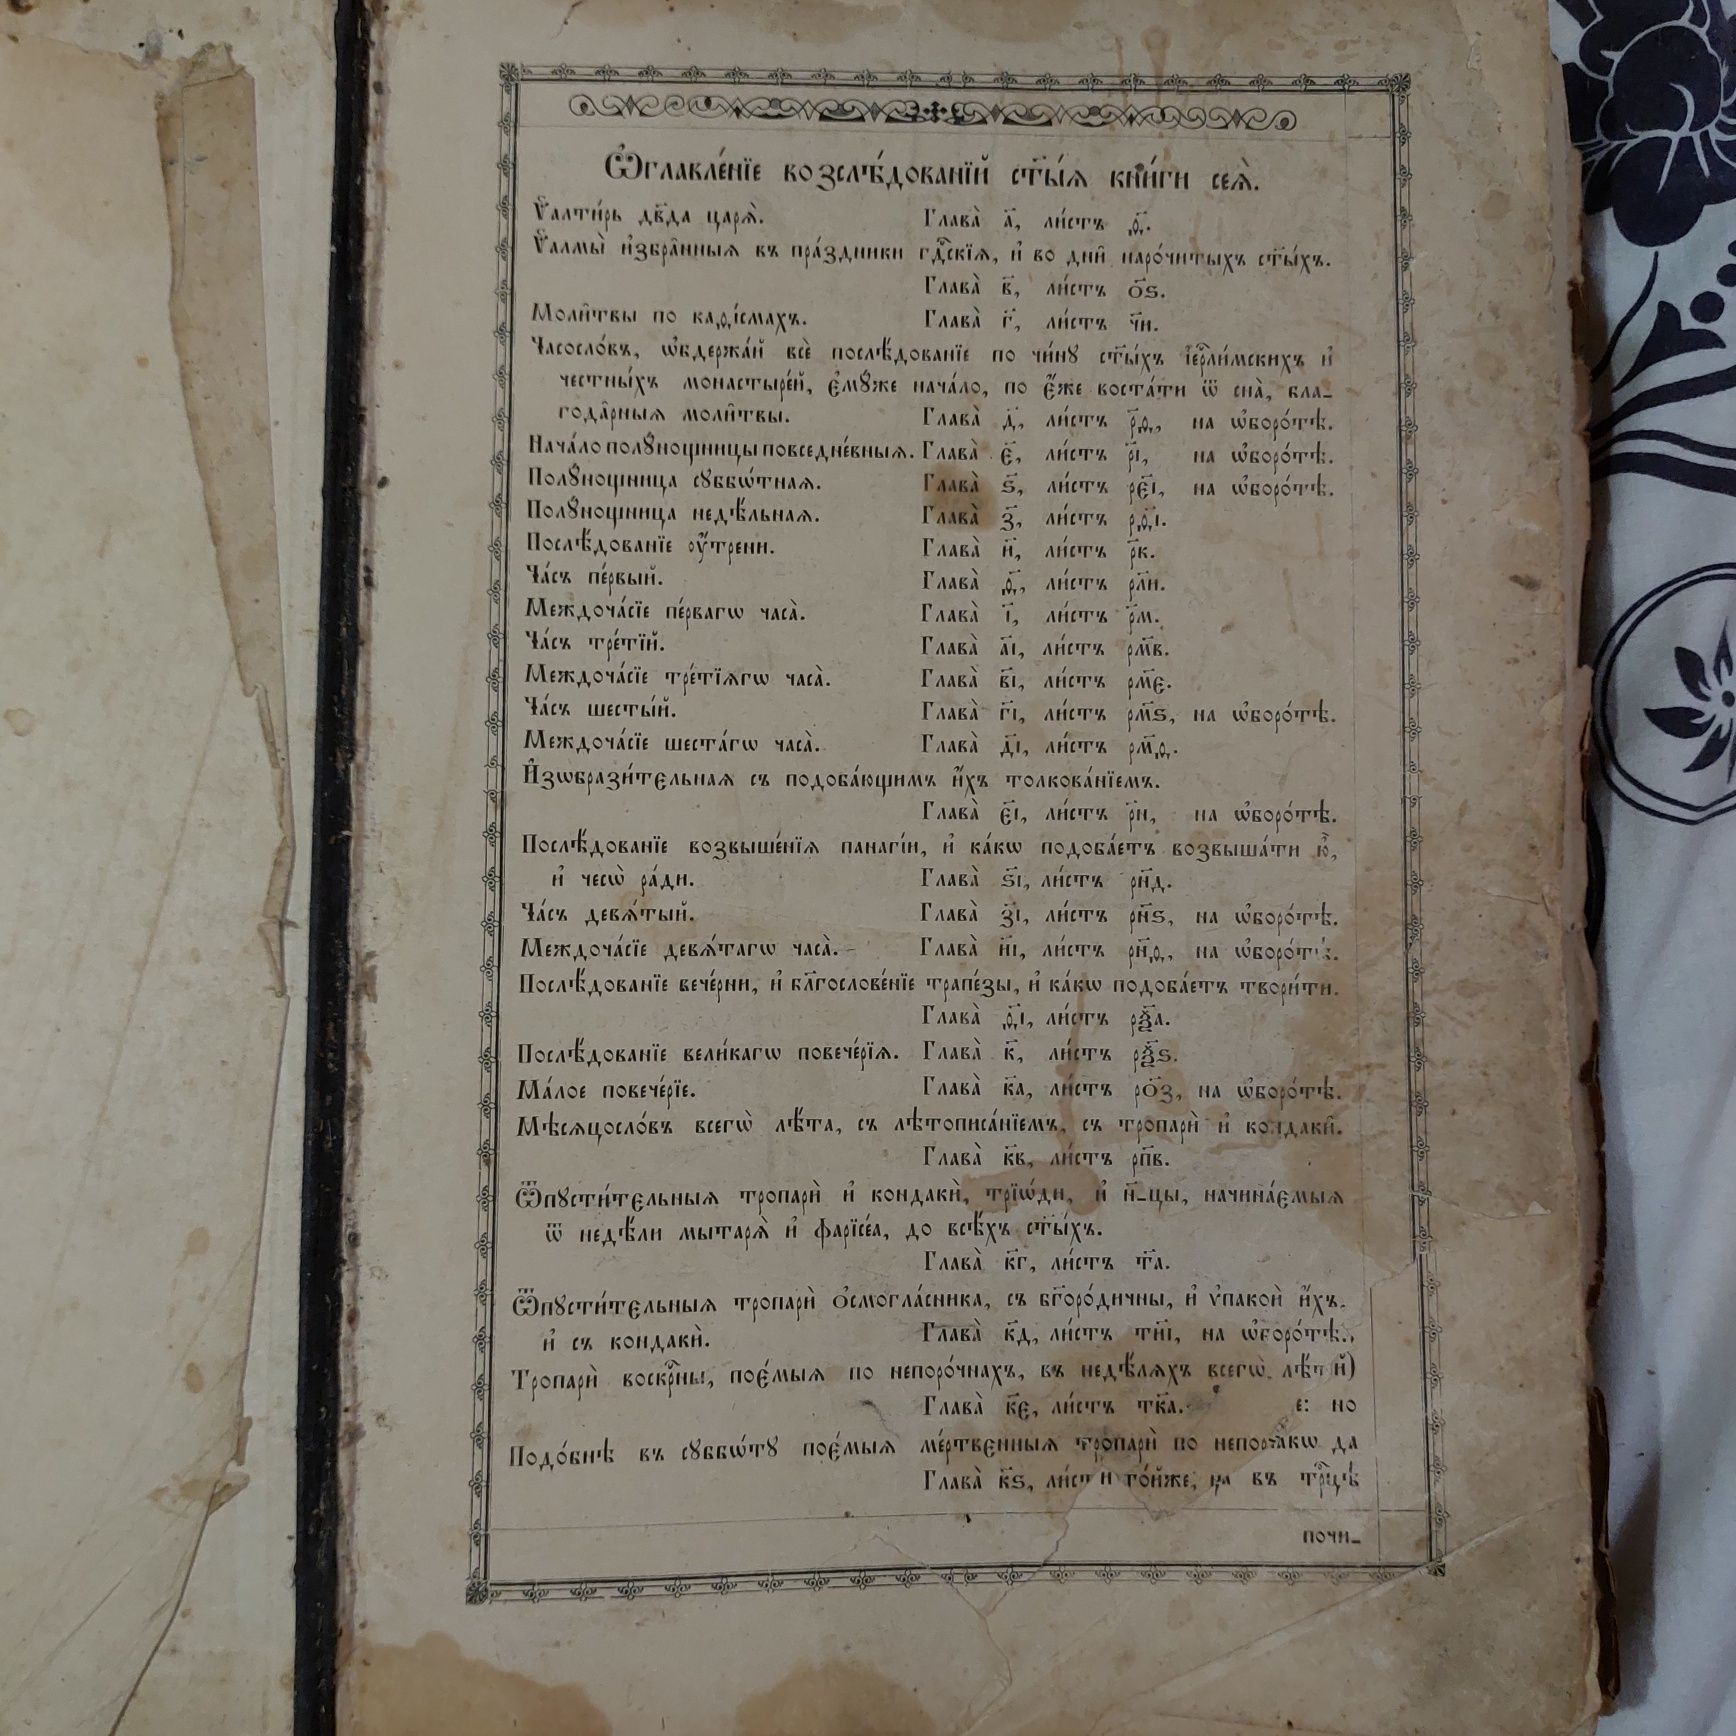 Ѽглавле́нїе возслѣ́дованїй ст҃ы́ѧ кни́ги сеѧ̀.
Ѱалти́рь дв҃да царѧ̀. Глава̀ а҃, ли́стъ ѳ҃.
Ѱалмы̀ и҆збра̑нныѧ въ пра́здники гдⷭ҇скїѧ, и҆ во дни̑ наро́читыхъ ст҃ы́хъ.
Глава̀ в҃, ли́стъ о҃ѕ.
Моли̑твы по каѳі́смахъ. Глава̀ г҃, ли́стъ ч҃и.
Часосло́въ, ѡ҆бдержа́й всѐ послѣ́дованїе по чи́нꙋ ст҃ы́хъ і҆ерⷭ҇ли́мскихъ и҆
честны́хъ монастыре́й, є҆мꙋ́же нача́ло, по є҆́же воста́ти ѿ сна̀, бла-
года̑рныѧ моли̑твы. Глава̀ д҃, ли́стъ р҃ѳ, на ѡ҆боро́тѣ.
Нача́ло полꙋ́нощницы повседне́вныѧ. Глава̀ є҃, ли́стъ р҃і, на ѡ҆боро́тѣ.
Полꙋ́нощница сꙋббѡ́тнаѧ. Глава̀ ѕ҃, ли́стъ рє҃і, на ѡ҆боро́тѣ.
Полꙋ́нощница недѣ́льнаѧ. Глава̀ з҃, ли́стъ рѳ҃і.
Послѣ́дованїе ᲂу҆́трени. Глава̀ и҃, ли́стъ р҃к.
Ча́съ пе́рвый. Глава̀ ѳ҃, ли́стъ рл҃и.
Междоча́сїе пе́рвагѡ часа̀. Глава̀ і҃, ли́стъ р҃м.
Ча́съ тре́тїй. Глава̀ а҃і, ли́стъ рм҃в.
Междоча́сїе тре́тїѧгѡ часа̀. Глава̀ в҃і, ли́стъ рм҃є.
Ча́съ шесты́й. Глава̀ г҃і, ли́стъ рм҃ѕ, на ѡ҆боро́тѣ.
Междоча́сїе шеста́гѡ часа̀. Глава̀ д҃і, ли́стъ рм҃ѳ.
И҆зѡбрази́тельнаѧ съ подоба́ющимъ и҆́хъ толкова́нїемъ.
Глава̀ є҃і, ли́стъ р҃н, на ѡ҆боро́тѣ.
Послѣ́дованїе возвыше́нїѧ панагі́и, и҆ ка́кѡ подоба́етъ возвыша́ти ю҆̀,
и҆ чесѡ̀ ра́ди. Глава̀ ѕ҃і, ли́стъ рн҃д.
Ча́съ девѧ́тый. Глава̀ з҃і, ли́стъ рн҃ѕ, на ѡ҆боро́тѣ.
Междоча́сїе девѧ́тагѡ часа̀. Глава̀ и҃і, ли́стъ рн҃ѳ, на ѡ҆боро́тѣ.
Послѣ́дованїе вече́рни, и҆ бл҃гослове́нїе трапе́зы, и҆ ка́кѡ подоба́етъ твори́ти.
Глава̀ ѳ҃і, ли́стъ рѯ҃а.
Послѣ́дованїе вели́кагѡ повече́рїѧ. Глава̀ к҃, ли́стъ рѯ҃ѕ.
Ма́лое повече́рїе. Глава̀ к҃а, ли́стъ ро҃з, на ѡ҆боро́тѣ.
Мѣсѧцосло́въ всегѡ̀ лѣ́та, съ лѣтописа́нїемъ, съ тропарѝ и҆ кондаки̑.
Глава̀ к҃в, ли́стъ рп҃в.
Ѿпꙋсти́тельныѧ тропарѝ и҆ кондакѝ, трїѡ́ди, и҆ н҃-цы, начина́емыѧ
ѿ недѣ́ли мытарѧ̀ и҆ фарїсе́а, до всѣ́хъ ст҃ы́хъ.
Глава̀ к҃г, ли́стъ т҃а.
Ѿпꙋсти́тельныѧ тропарѝ ѻ҆смогла́сника, съ бг҃оро́дичны, и҆ ѵ҆пакоѝ и҆́хъ.
и҆ съ кондакѝ. Глава̀ к҃д, ли́стъ ти҃і, на ѡ҆боро́тѣ.
Тропарѝ воскрⷭ҇ны, поє́мыѧ по непоро́чнахъ, въ недѣ́лѧхъ всегѡ̀ лѣ́т й)
Глава̀ к҃є, ли́стъ тк҃а. е: но
Подо́бнѣ въ сꙋббѡ́тꙋ поє́мыѧ ме́ртвенныѧ тропарѝ по да
Глава̀ к҃ѕ, то́йже, въ трⷪ҇цѣ
почи-